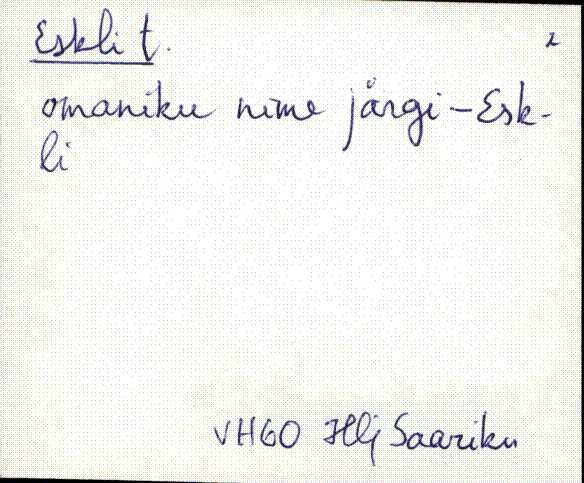 Eskli t. 2
omaniku nime järgi – Esk-
li
VHGO Hlj Saariku